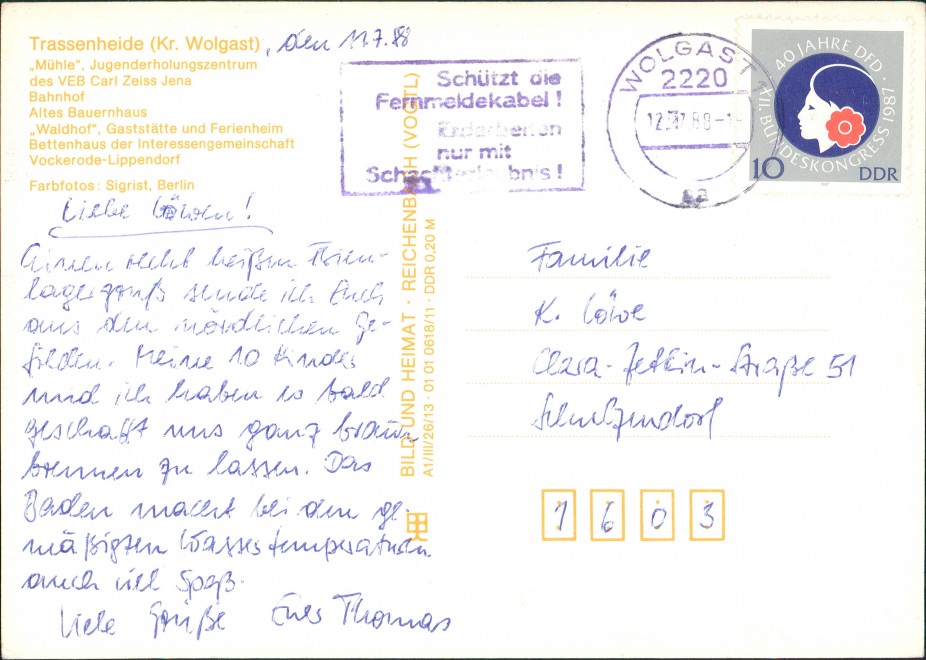 Trassenheide (Kr. Wolgast), den 11.7.88
„Mühle“, Jugenderholungszentrum
des VEB Carl Zeiss Jena
Bahnhof
Altes Bauernhaus
„Waldhof“, Gaststätte und Ferienheim
Bettenhaus der Interessengemeinschaft
Vockerode-Lippendorf
Farbfotos: Sigrist, Berlin
Liebe Löwen!
Einen recht heißen Ferien-
lagergruß sende ich Euch
aus den nördlichen Ge-
filden. Meine 10 Kinder
und ich haben es bald
geschafft uns ganz braun
brennen zu lassen. Das
Baden macht bei den ge-
mäßigten Wassertemperaturen
auch viel Spaß.
Viele Grüße Euer Thomas
BILD UND HEIMAT · REICHENBACH (VOGTL)
A1/III/26/13 · 01 01 0618/11 · DDR 0,20 M
Schützt die
Fernmeldekabel!
Erdarbeiten
nur mit
Schachterlaubnis!
WOLGAST 1
2220
12.-7.88-1
aa
40 JAHRE DFD · XII. BUNDESKONGRESS 1987
10
DDR
Familie
K. Löwe
Clara-Zetkin-Straße 51
Schulzendorf
1603